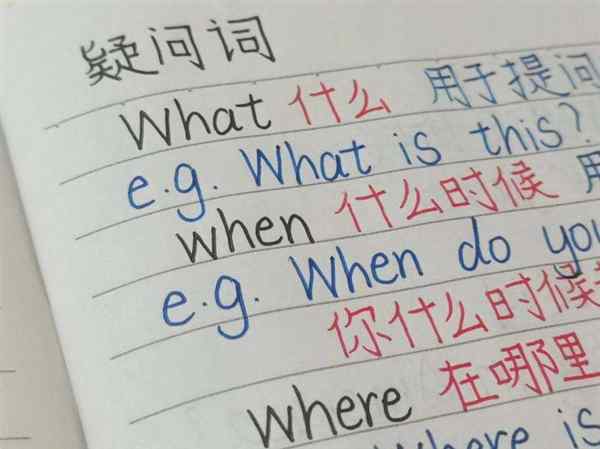 疑问词
What 什么 用于提问
e.g. What is this?
when 什么时候 用
e.g. When do you
你什么时候
where 在哪里
Where is